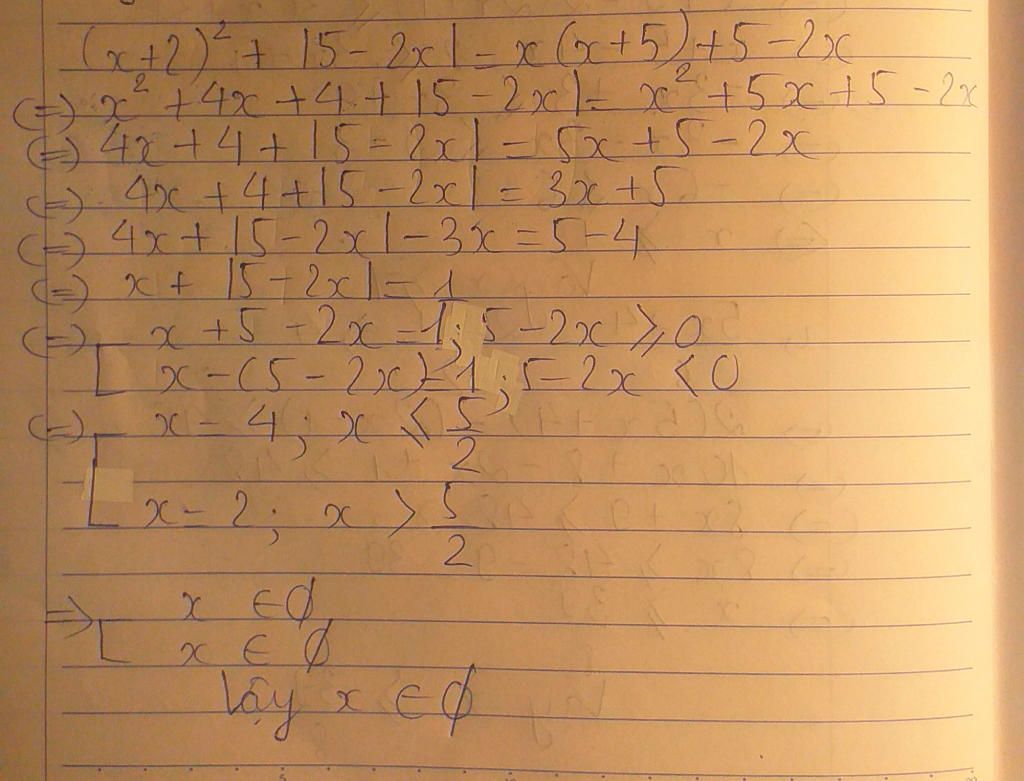 (x+2)² + |5 - 2x| = x(x+5)+5-2x
(=) x² + 4x + 4 + |5 - 2x| = x² + 5x + 5 - 2x
(=) 4x + 4 + |5 - 2x| = 5x + 5 - 2x
(=) 4x + 4 + |5 - 2x| = 3x + 5
(=) 4x + |5 - 2x| - 3x = 5 - 4
(=) x + |5 - 2x| = 1
(=) [ x + 5 - 2x = 1; 5 - 2x ⩾ 0
x - (5 - 2x) = 1; 5 - 2x < 0
(=) [ x = 4; x ⩽ 5/2
x = 2; x > 5/2
=> [ x ∈ ∅
x ∈ ∅
Vậy x ∈ ∅